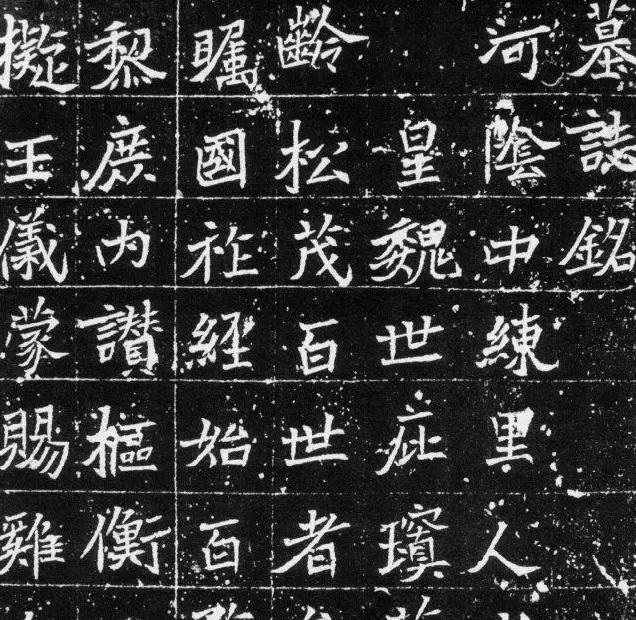 墓誌銘
河陰中練里人
皇魏世疵瓊
齡松茂百世者
矚國祚經始百
黎庶内讃樞衡
擬王儀蒙賜雞